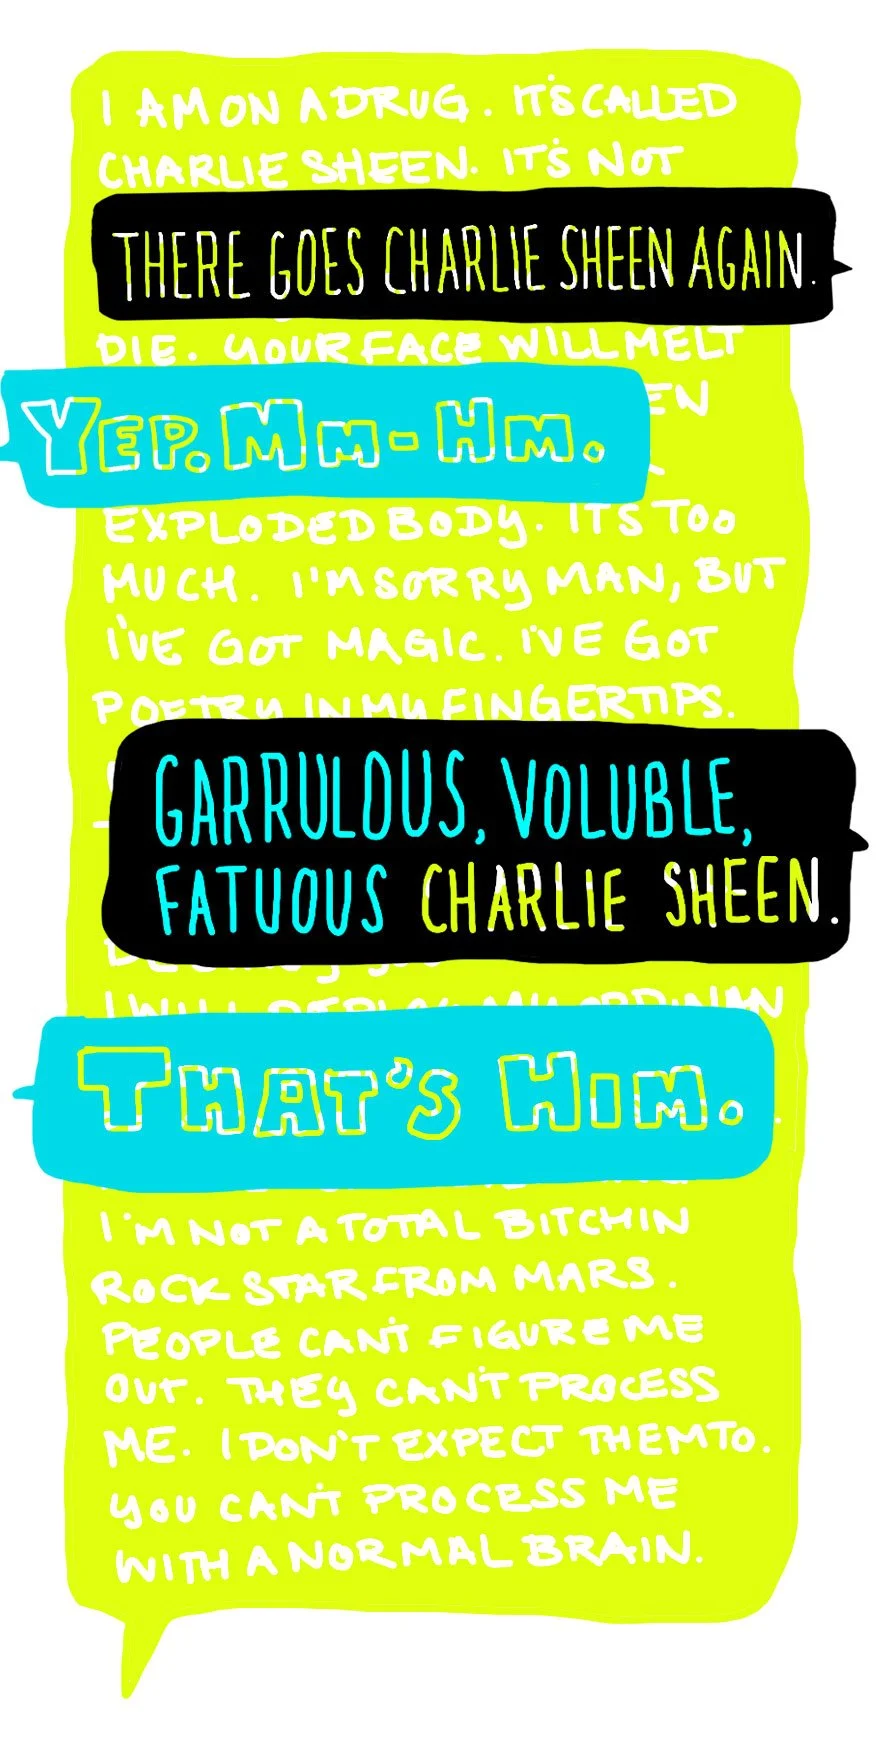 I AM ON A DRUG. IT'S CALLED
CHARLIE SHEEN. IT'S NOT
THERE GOES CHARLIE SHEEN AGAIN.
DIE. YOUR FACE WILL MELT
YEP. MM-HM.
EXPLODED BODY. IT'S TOO
MUCH. I'M SORRY MAN, BUT
I'VE GOT MAGIC. I'VE GOT
POETRY IN MY FINGERTIPS.
GARRULOUS, VOLUBLE,
FATUOUS CHARLIE SHEEN.
I WILL DEPLOY MY ORDINAN
THAT'S HIM.
I'M NOT A TOTAL BITCHIN
ROCK STAR FROM MARS.
PEOPLE CAN'T FIGURE ME
OUT. THEY CAN'T PROCESS
ME. I DON'T EXPECT THEM TO.
YOU CAN'T PROCESS ME
WITH A NORMAL BRAIN.